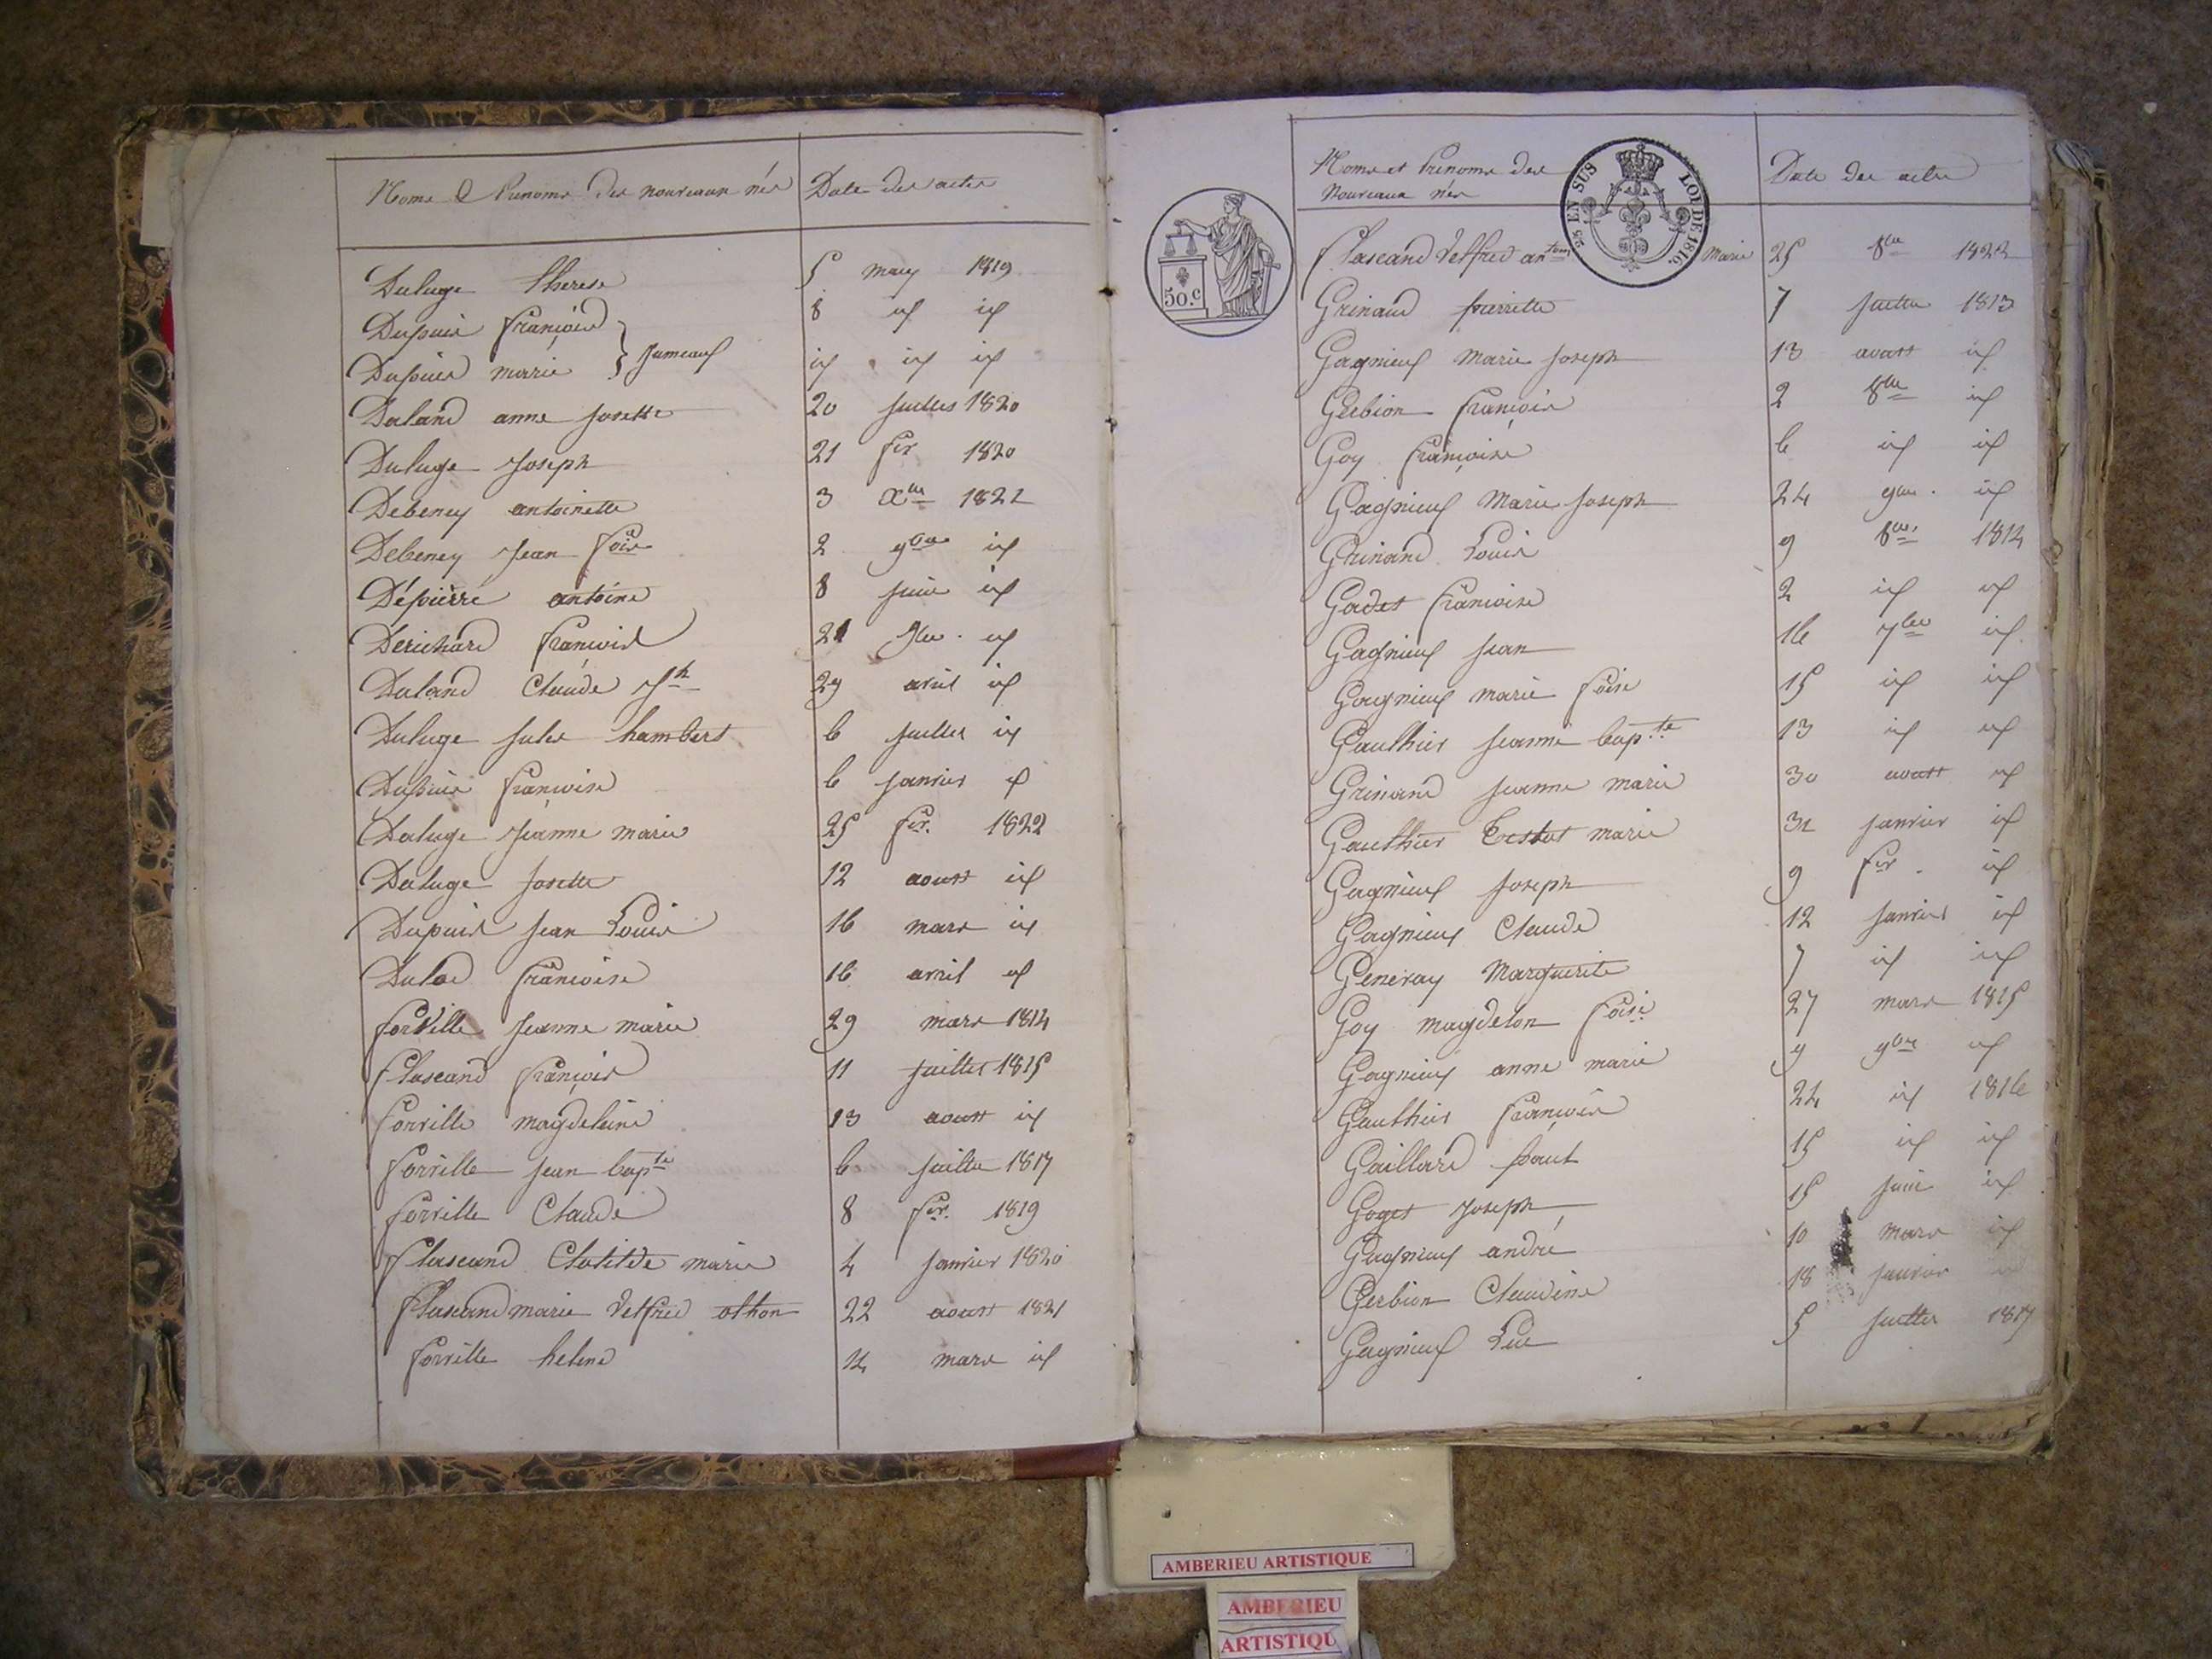 Noms & Prenoms des nouveaux nés Date des actes
Deluge therese 5 may 1819
Dupuis françois 8 id id
Dupuis marie } Jumeaux id id id
Daland anne Josette 20 Juillet 1820
Deluge Joseph 21 fer 1820
Debeney antoinette 3 Xbre 1821
Debeney Jean fois 2 9bre id
Dépierre antoine 8 Juin id
Derichard françois 21 9bre id
Daland Claude Jh 29 avril id
Deluge Jules hambert 6 Juillet id
Dupuis françoise 6 Janvier id
Deluge Jeanne marie 25 fer. 1822
Deluge Josette 12 aoust id
Dupuis Jean Louis 16 mars id
françoise 16 avril id
forville Jeanne marie 29 mars 1814
flascand françois 11 Juillet 1815
forville magdeleine 13 aoust id
forville Jean bapte 6 Juillet 1817
forville Claude 8 fer. 1819
flascand Clotilde marie 4 Janvier 1820
flascand marie delfred othon 22 aoust 1821
forville helene 14 mars id
Noms et Prenoms des Date des actes
Nouveaux nés
25 EN SUS LOI DE 1816.
50.c
flascand delfred antom marie 25 8bre 1822
Grinand pierrette 7 Juillet 1813
Gagnieux marie Joseph 13 aoust id
Gerbion françois 2 8bre id
Goy françoise 6 id id
Gagnieux Marie Joseph 24 9bre. id
Grinand Louis 9 8bre. 1814
Gadet françoise 2 id id
Gagnieux Jean 16 7bre id
Gagnieux marie foise 15 id id
Gauthier Jeanne bapte 13 id id
Grinand Jeanne marie 30 aoust id
Gauthier testut marie 31 Janvier id
Gagnieux Joseph 9 fer. id
Gagnieux Claude 12 Janvier id
Generay Marguerite 7 id id
Goy magdelon foise 27 mars 1815
Gagnieux anne marie 9 9bre id
Gauthier françois 22 id 1816
Gaillard paul 15 id id
Goget Joseph 15 Juin id
Gagnieux andré 10 mars id
Gerbion Claudine 18 Janvier id
Gagnieux 5 Juillet 1817
AMBERIEU ARTISTIQUE
AMBERIEU
ARTISTIQU